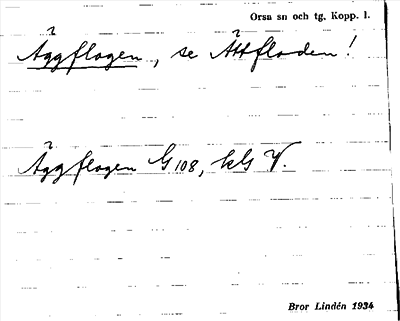 Orsa sn och tg. Kopp. l.
Äggflogen, se Åttfloden!
Äggflogen G 108, kls V.
Bror Lindén 1934